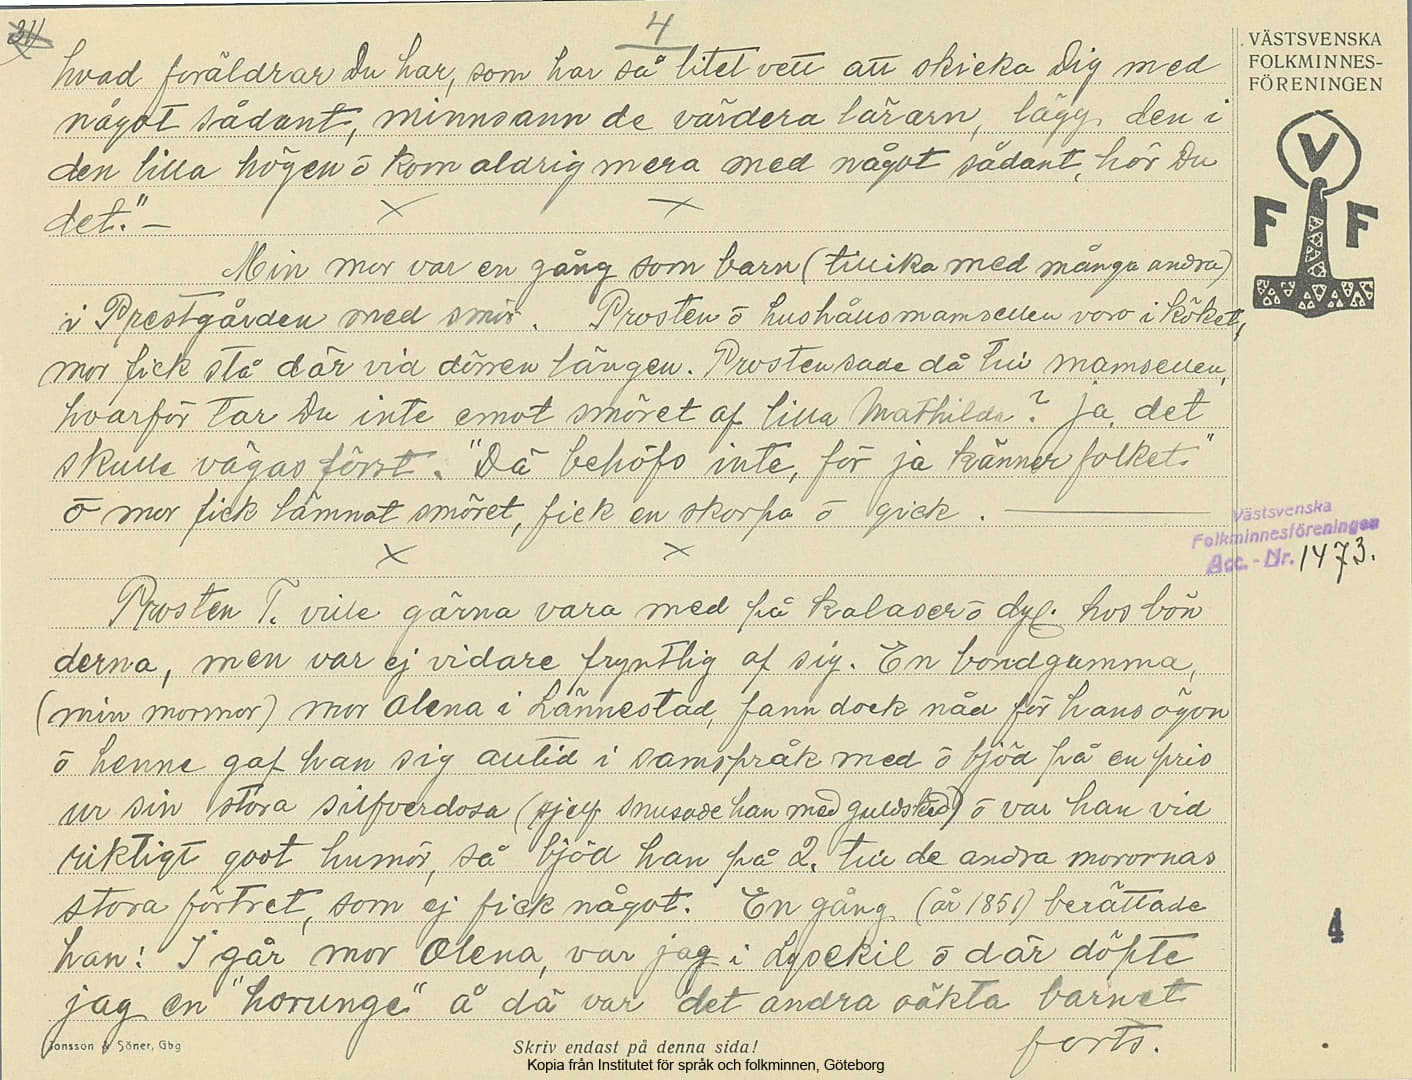 4
hvad föräldrar Du har, som har så litet vett att skicka Dig med
något sådant, minnsann de värdera lärarn, lägg den i
den lilla högen ō kom aldrig mera med något sådant, hör Du
det." —
Min mor var en gång som barn (tillika med många andra)
i Prestgården med smör. Prosten ō hushållsmamsellen voro i köket,
mor fick stå där vid dörren längen. Prosten sade då till mamsellen,
hvarför tar Du inte emot smöret af lilla Mathilda? ja, det
skulle vägas först. "Dä behöfs inte, för ja känner folket."
ō mor fick lämnat smöret, fick en skorpa ō gick. —
Prosten T. ville gärna vara med på kalaser ō dyl. hos bön
derna, men var ej vidare fryntlig af sig. En bondgumma,
(min mormor) mor Olena i Lännestad, fann dock nåd för hans ögon
ō henne gaf han sig alltid i samspråk med ō bjöd på en pris
ur sin stora silfverdosa (sjelf snusade han med guldsked) ō var han vid
riktigt godt humör, så bjöd han på 2. till de andra morornas
stora förtret, som ej fick något. En gång (år 1851) berättade
han: I går mor Olena, var jag i Lysekil ō där döpte
jag en "horunge" å dä var det andra oäkta barnet
forts.
VÄSTSVENSKA
FOLKMINNES-
FÖRENINGEN
V
F F
Västsvenska
Folkminnesföreningen
Acc. - Nr. 1473.
4
Jonsson & Söner, Gbg
Skriv endast på denna sida!
Kopia från Institutet för språk och folkminnen, Göteborg